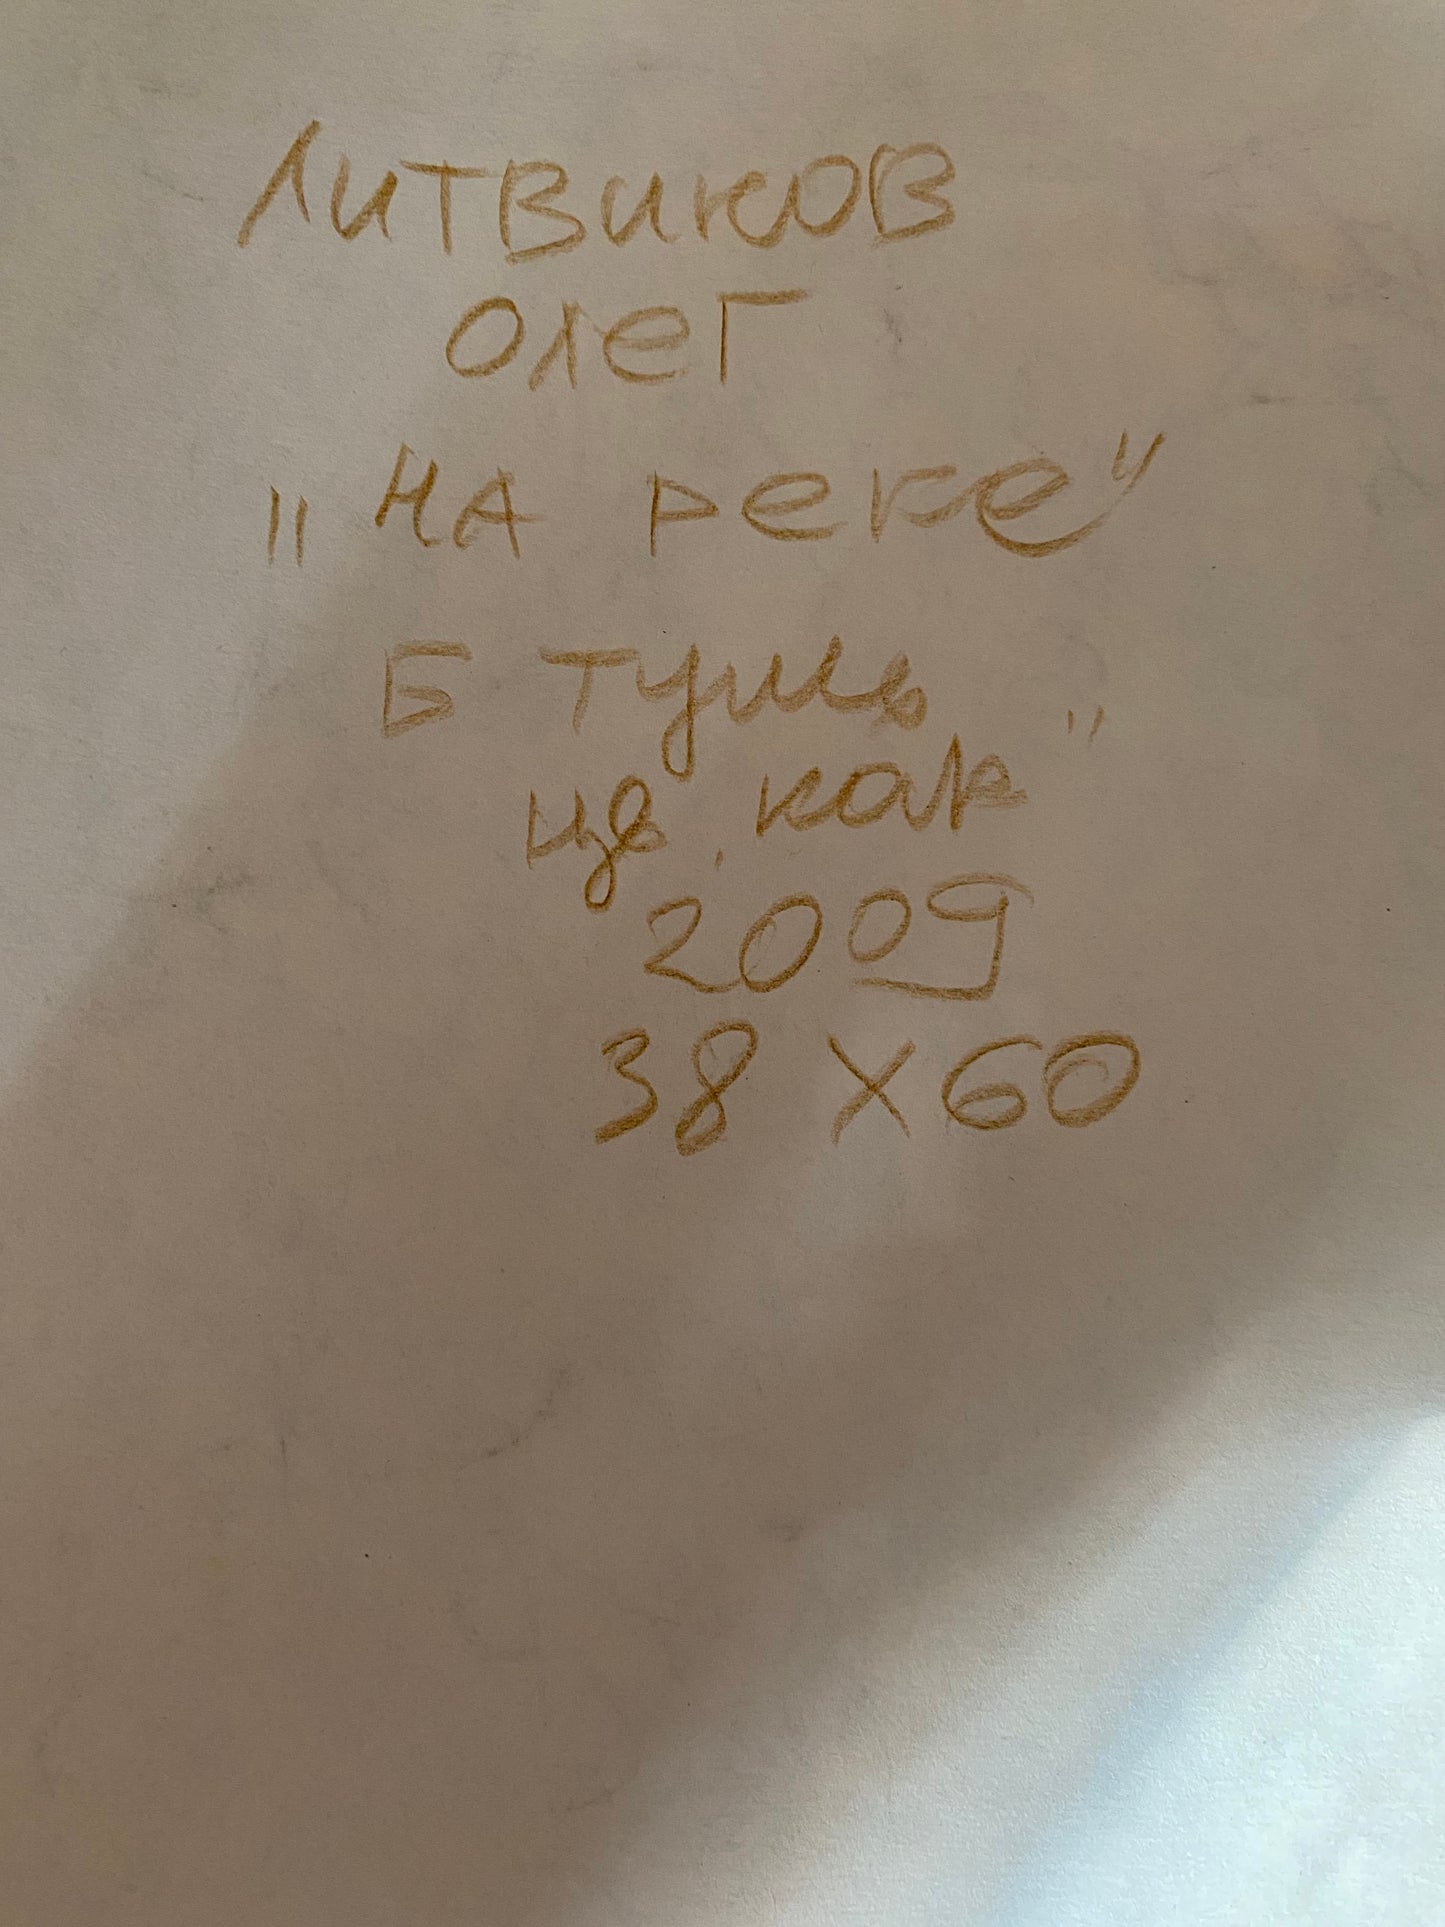 Литвиков
Олег
„На реке"
Б тушь "
цв. кар
2009
38 х 60